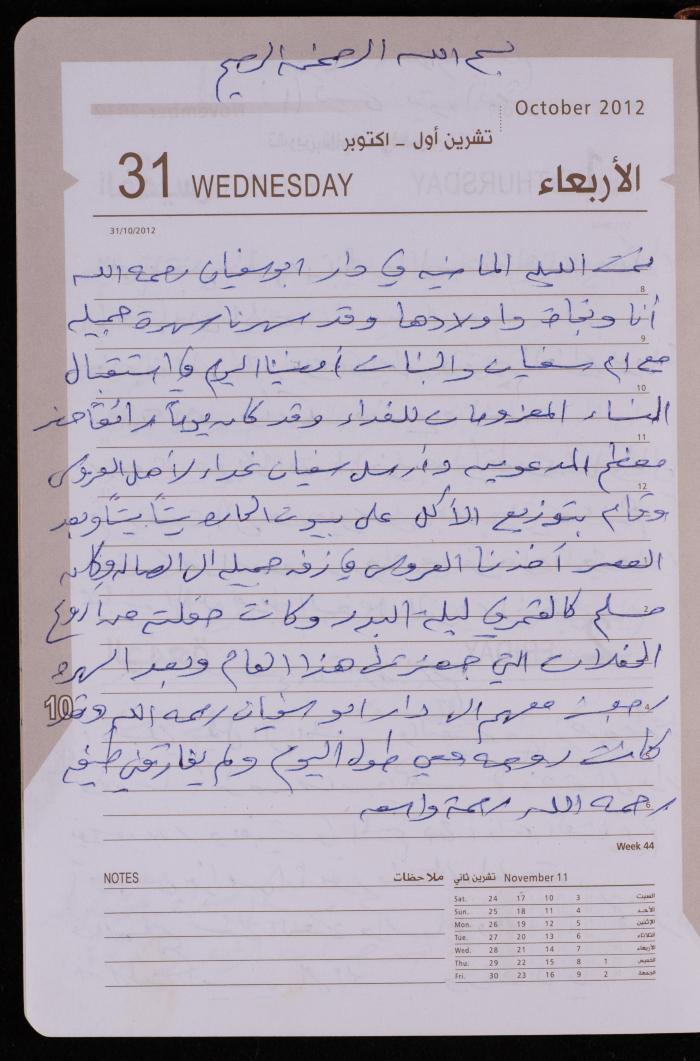 بسم الله الرحمن الرحيم
October 2012
تشرين أول - اكتوبر
31 WEDNESDAY الأربعاء
31/10/2012
نمت الليلة الماضيه في دار ابو سفيان رحمه الله
8
أنا ونجاة واولادها وقد سهرنا سهرة جميله
9
مع ام سفيان والبنات أمضينا اليوم في استقبال
10
النساء المعزومات للغداء وقد كان يوماً رائقاً حضر
11
معظم المدعوين وأرسل سفيان غداء لأهل العروس
12
وقام بتوزيع الأكل على بيوت الحاره بيتاً بيتاً وبعد
العصر أخذنا العروس في زفه جميله الى الصاله وكان
مسلم كالقمر في ليلة البدر وكانت حفلته من اروع
الحفلات التي حضرتها في هذا العام وبعد السهره
10
رجعت معهم الى دار ابو سفيان رحمه الله وقد
كانت روحه معي طول اليوم ولم يفارقني طيفه
رحمه الله رحمة واسعه
6
Week 44
NOTES ملاحظات
November 11 تشرين ثاني
Sat. 24 17 10 3 السبت
Sun. 25 18 11 4 الأحد
Mon. 26 19 12 5 الإثنين
Tue. 27 20 13 6 الثلاثاء
Wed. 28 21 14 7 الأربعاء
Thu. 29 22 15 8 1 الخميس
Fri. 30 23 16 9 2 الجمعة